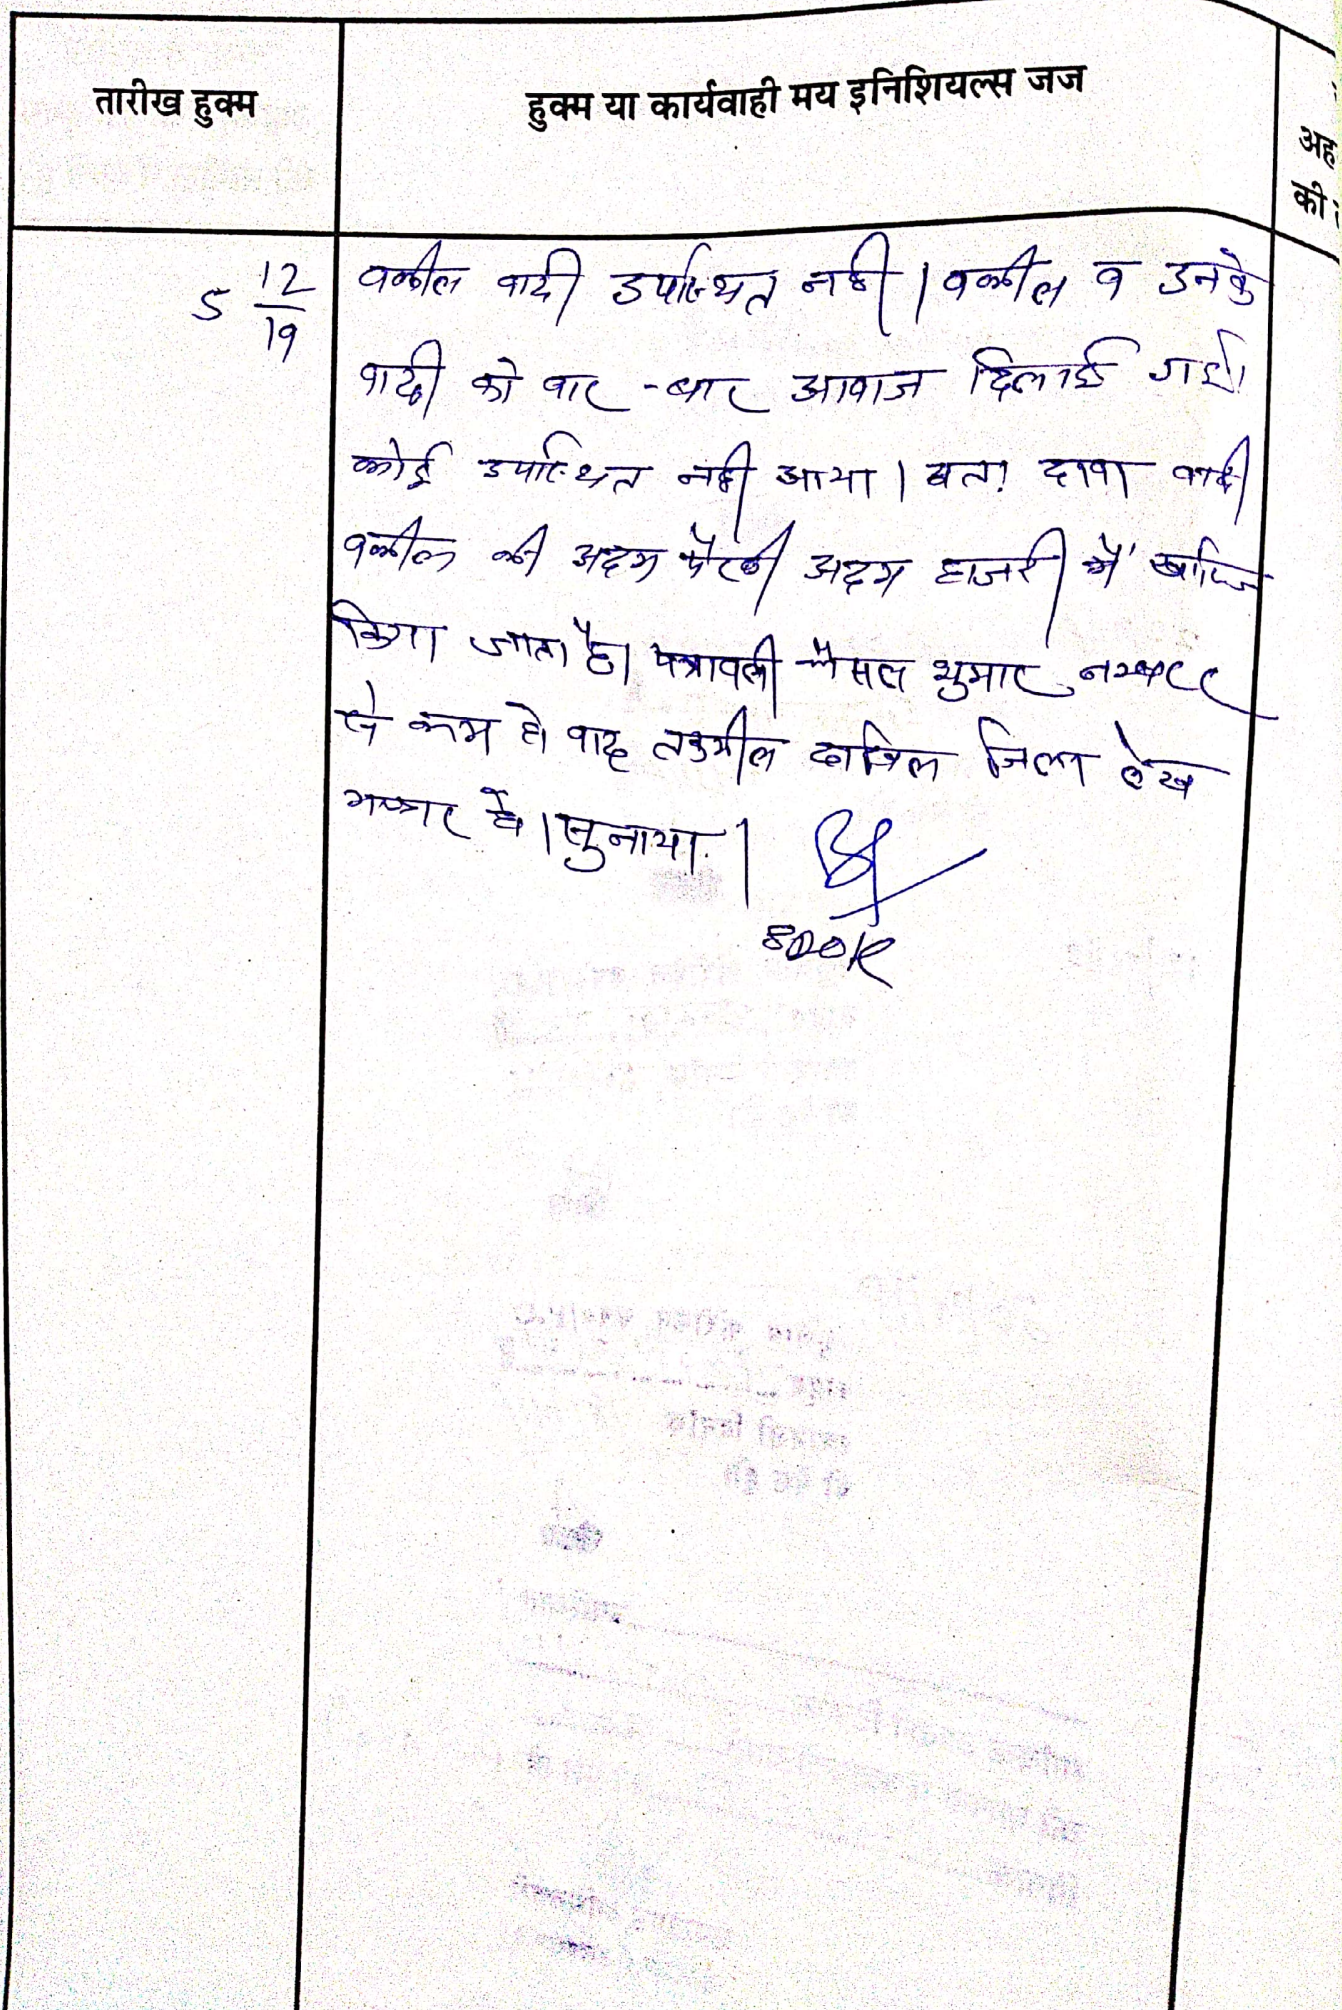 तारीख हुक्म
हुक्म या कार्यवाही मय इनिशियल्स जज
अह
की
5 12/19
वकील वादी उपस्थित नही । वकील व उनके
वादी को बार-बार आवाज दिलाई गई।
कोई उपस्थित नही आया । अतः दावा वादी
वकील की अदम पैरवी अदम हाजरी में खारिज
किया जाता है। पत्रावली फैसल शुमार नम्बर
से कम हो बाद तकमील दाखिल जिला लेख
भण्डार हो । सुनाया ।